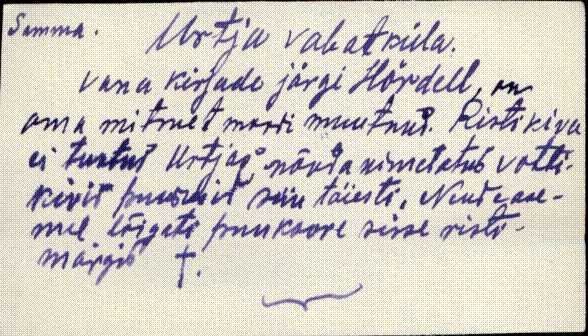 Samma.
Urtja vabatküla.
Vana kirjade järgi Hördell, on
oma mitmet moodi muutnud. Ristikiva
ei tuntud Urtjas, nõnda nimetatud votti-
kivid puusid siin täiesti. Nende ase-
mel lõigati puukoore sisse risti-
märgid †.